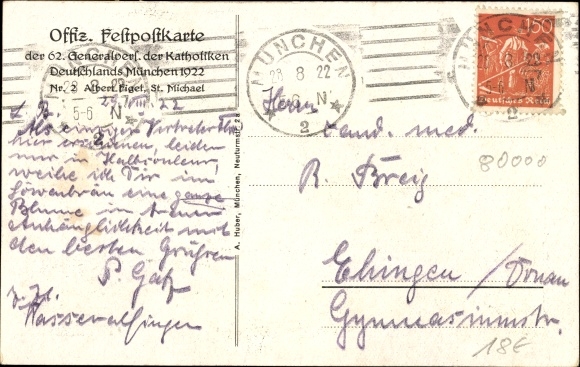 Offiz. Festpostkarte
der 62. Generalvers. der Katholiken
Deutschlands München 1922
Nr. 2 Albert Figel, St. Michael
MÜNCHEN
23 8 22
N
2
150
Deutsches Reich
L. B. 23. VIII. 22
Als einziger Vertreter
hier erschienen, leider
nur in Halbcouleur,
weihe ich Dir im
Löwenbräu eine ganze
Blume in treuer
Anhänglichkeit mit
den besten Grüßen
P. Gatz
z. Zt.
Wasseralfingen
A. Huber, München, Neuturmstr. 2a
Herrn
cand. med.
R. Breig
80000
Ehingen / Donau
Gymnasiumstr.
18€